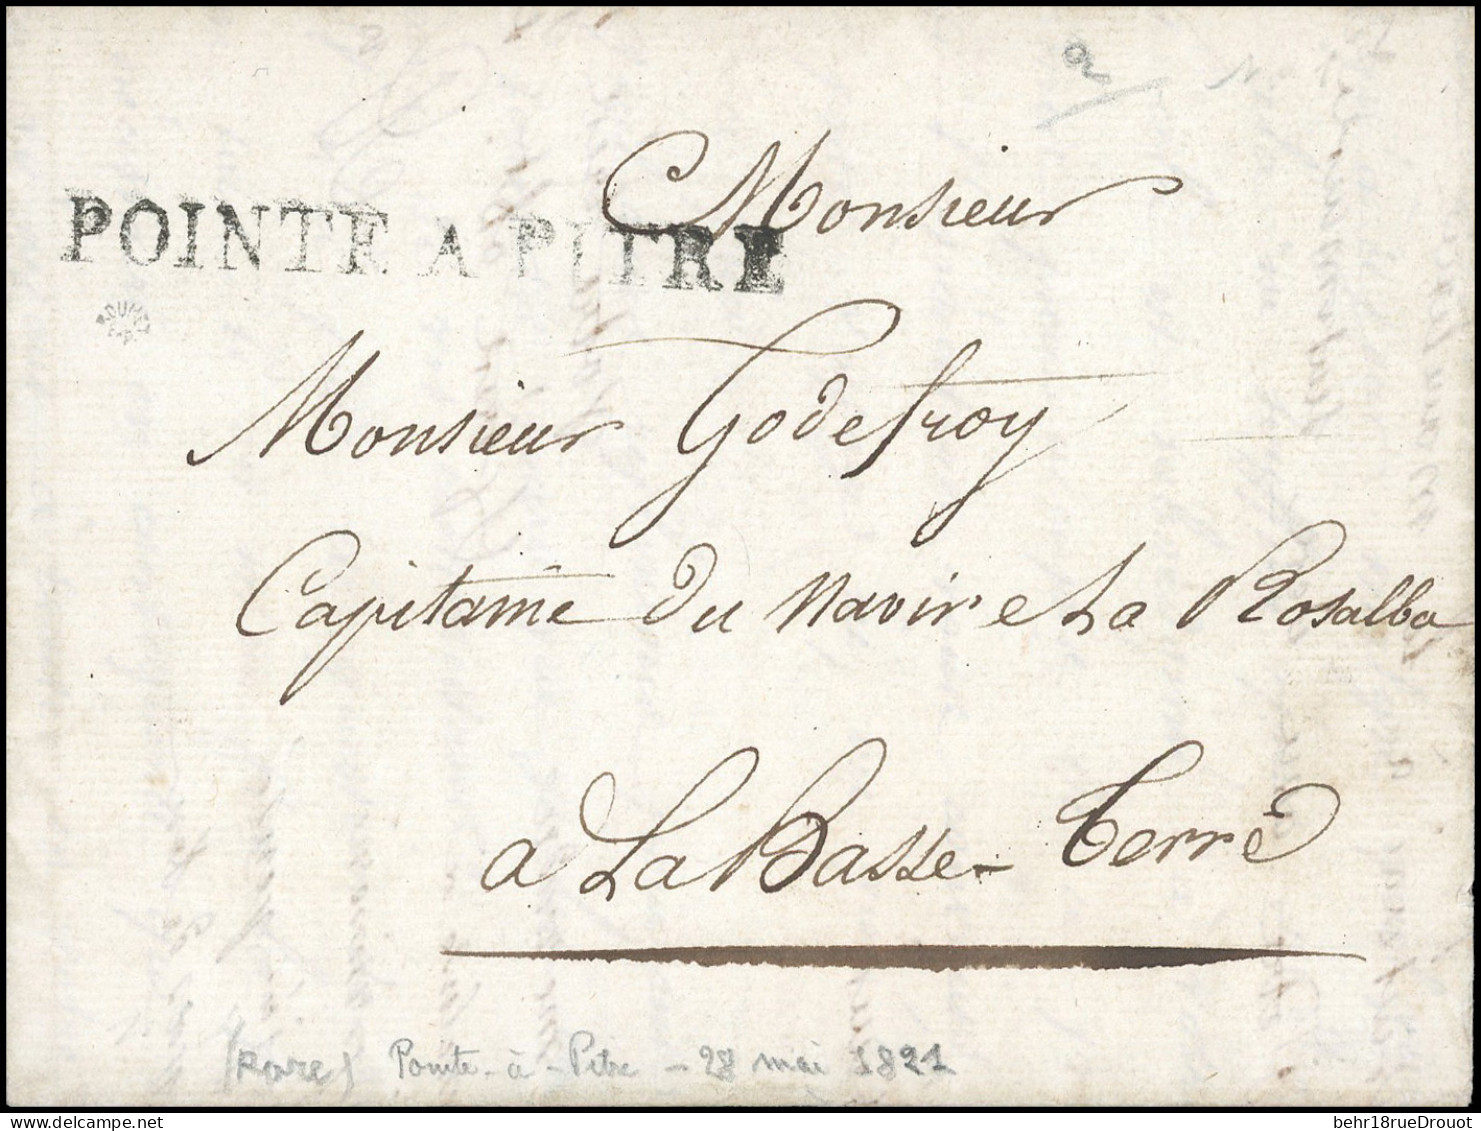 a
Monsieur
POINTE A PITRE
ROUMET
Monsieur Godefroy
Capitaine du Navire La Rosalba
a La Basse-Terre
(Rare) Pointe-à-Pitre - 28 mai 1821
behr18rueDrouot